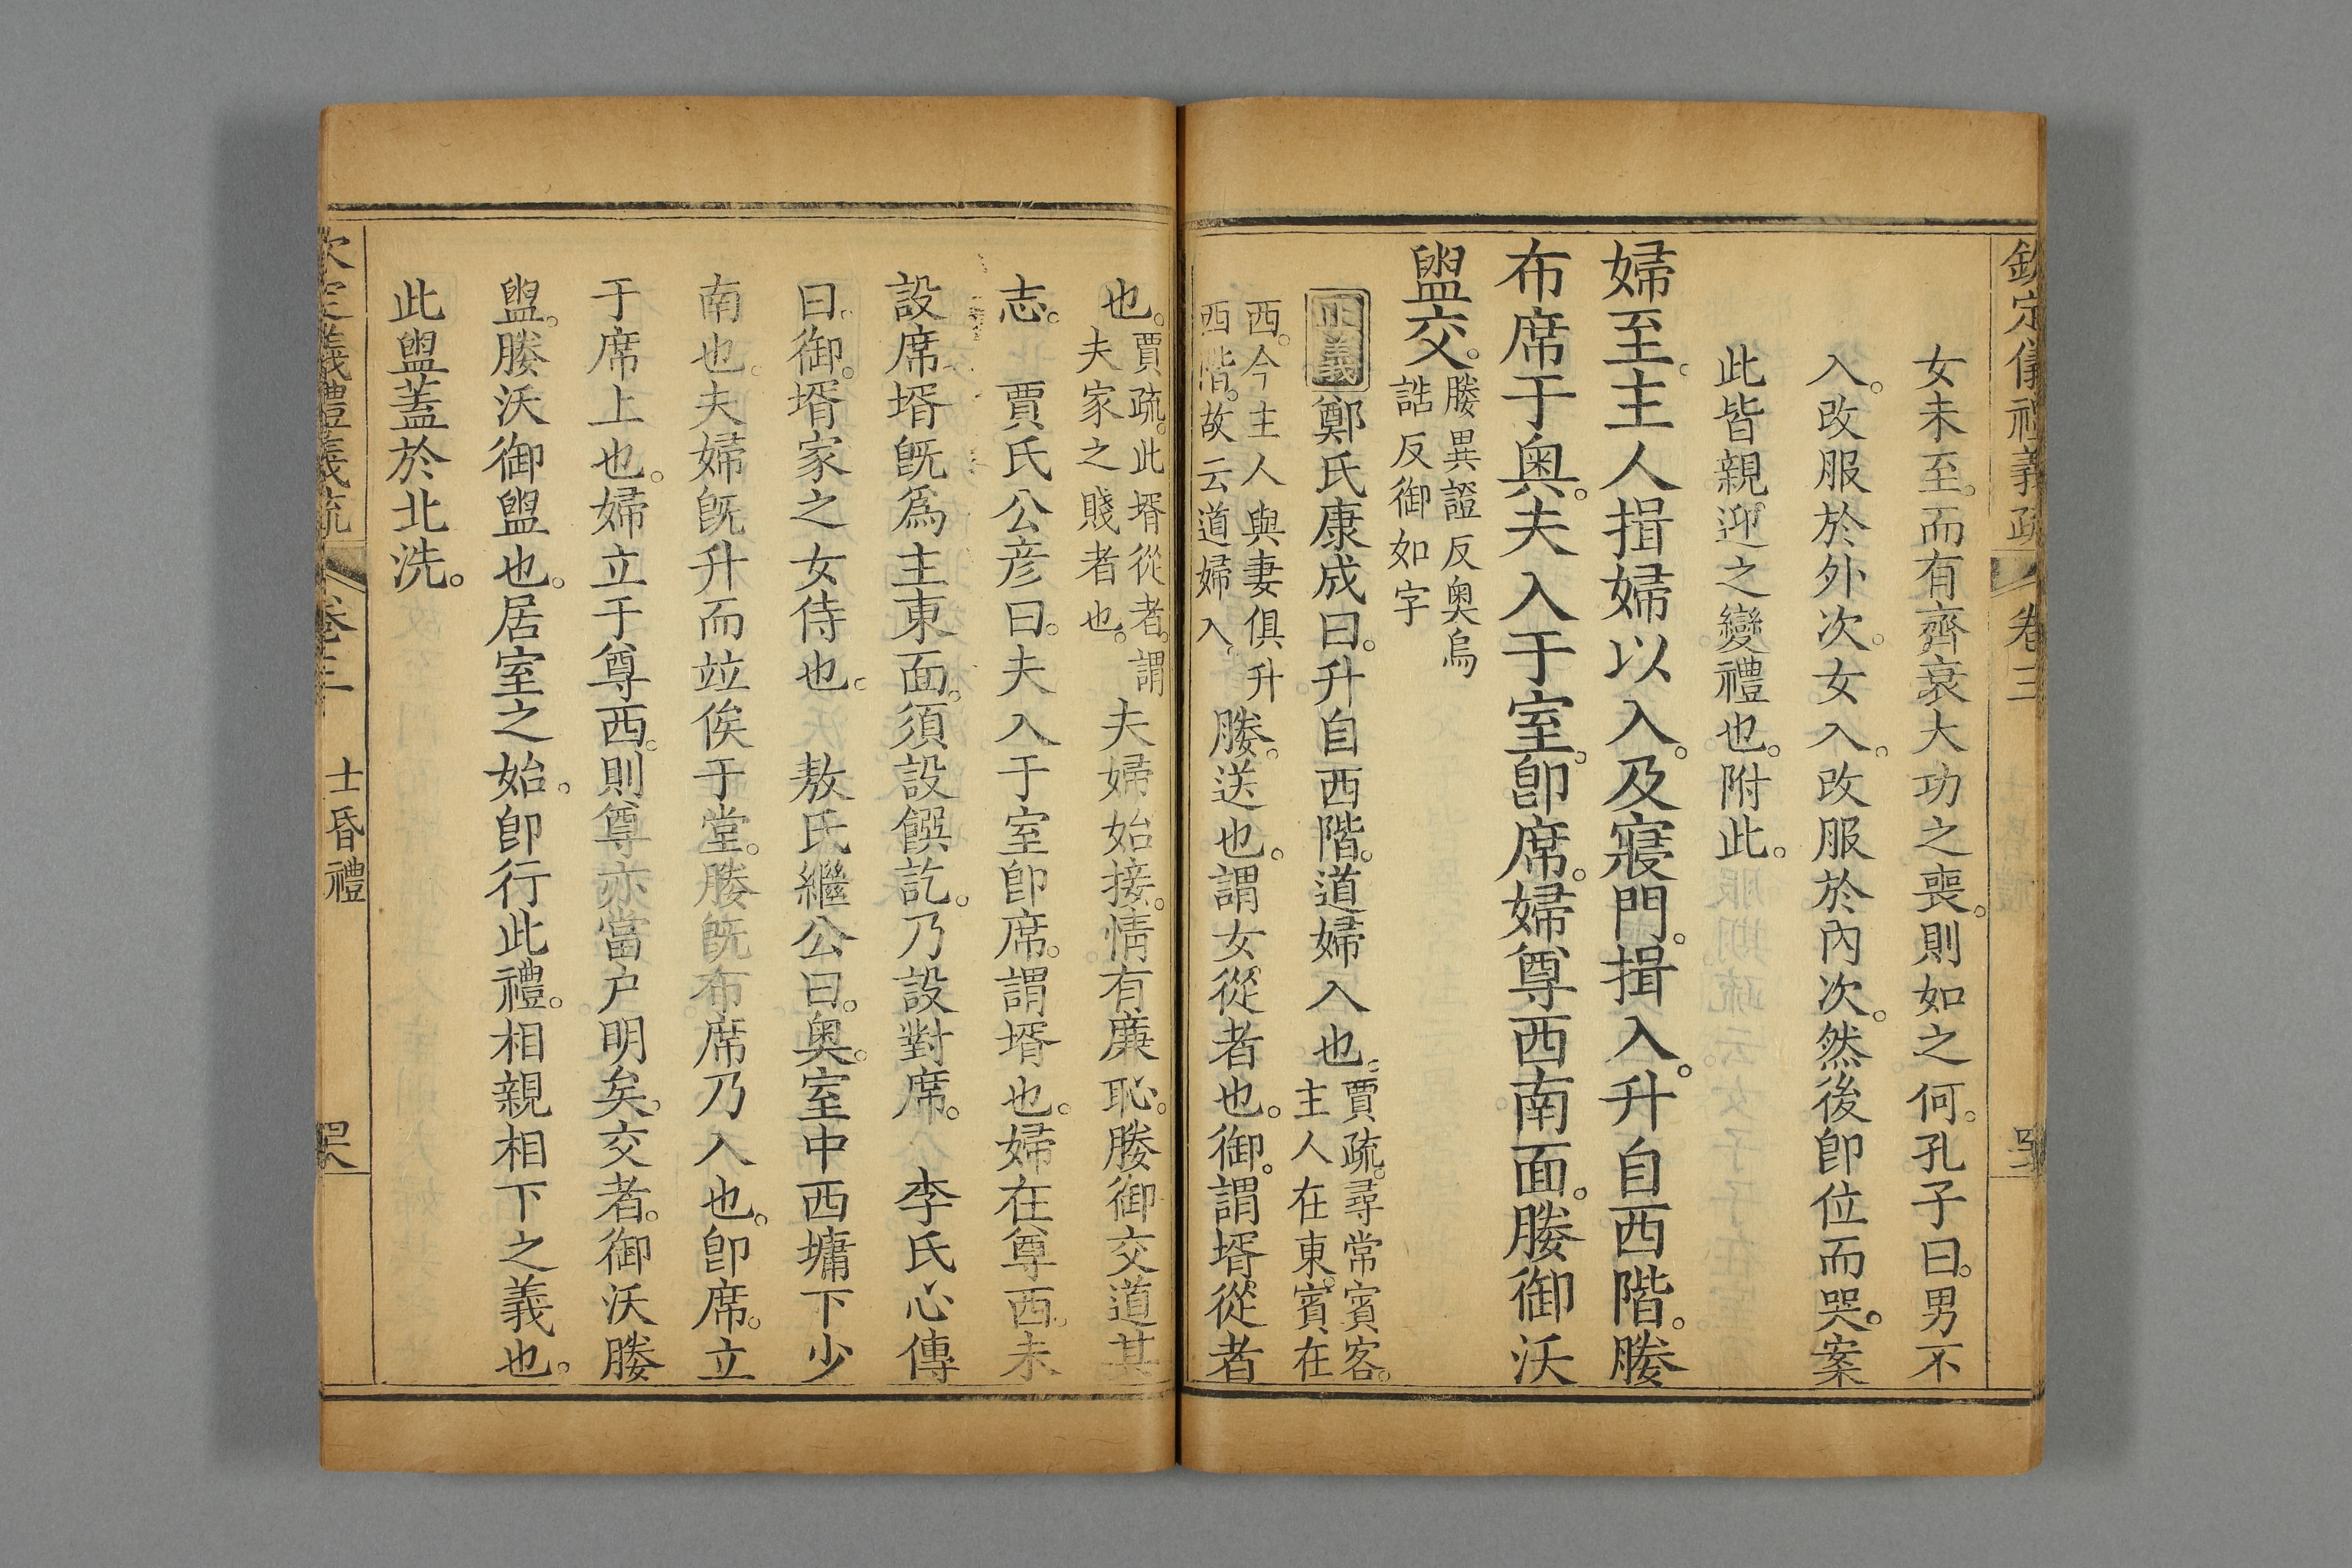 欽定儀禮義疏 卷三
女未至。而有齊衰大功之喪。則如之何。孔子曰。男不
入。改服於外次。女入。改服於內次。然後卽位而哭。案
此皆親迎之變禮也。附此。
婦至。主人揖婦以入。及寢門。揖入。升自西階。媵
布席于奧。夫入于室。卽席。婦尊西南面。媵御沃
盥交。媵異證反奧烏
誥反御如字
正義 鄭氏康成曰。升自西階。道婦入也。賈疏。尋常賓客。
主人在東。賓在
西。今主人與妻俱升
西階。故云道婦入。媵。送也。謂女從者也。御。謂壻從者
也。賈疏。此壻從者。謂
夫家之賤者也。夫婦始接。情有廉恥。媵御交道其
志。 賈氏公彥曰。夫入于室卽席。謂壻也。婦在尊西。未
設席。壻旣爲主東面。須設饌訖。乃設對席。 李氏心傳
曰。御。壻家之女侍也。 敖氏繼公曰。奧。室中西墉下少
南也。夫婦旣升而竝俟于堂。媵旣布席乃入也。卽席。立
于席上也。婦立于尊西。則尊亦當户明矣。交者。御沃媵
盥。媵沃御盥也。居室之始。卽行此禮。相親相下之義也。
此盥蓋於北洗。
欽定儀禮義疏 卷三 士昏禮